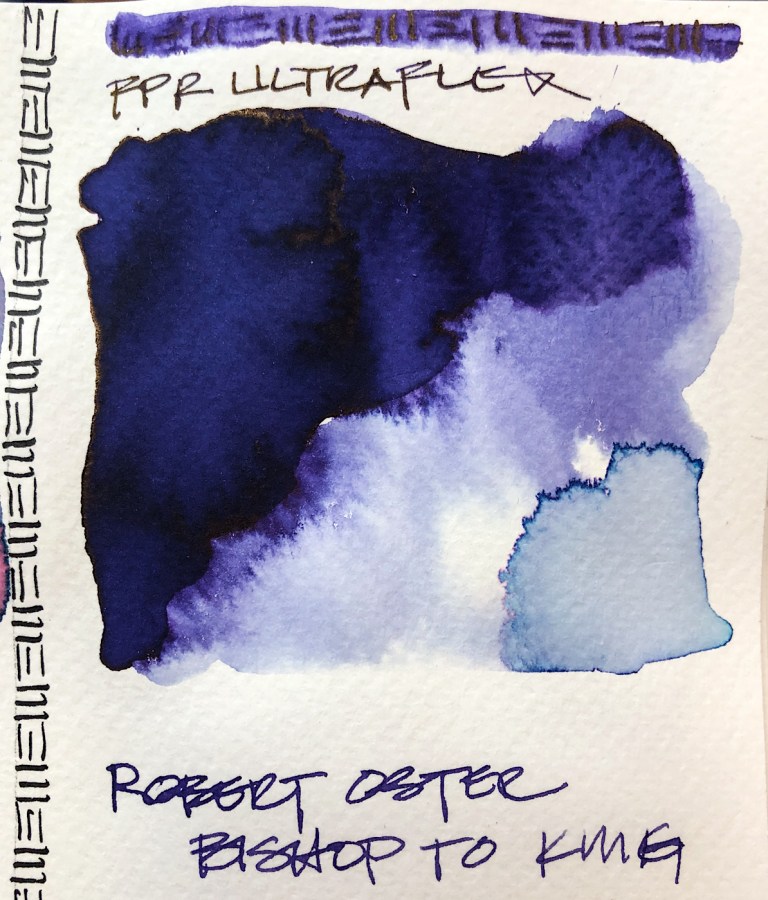 FPR ULTRAFLEX
ROBERT OSTER
BISHOP TO KING